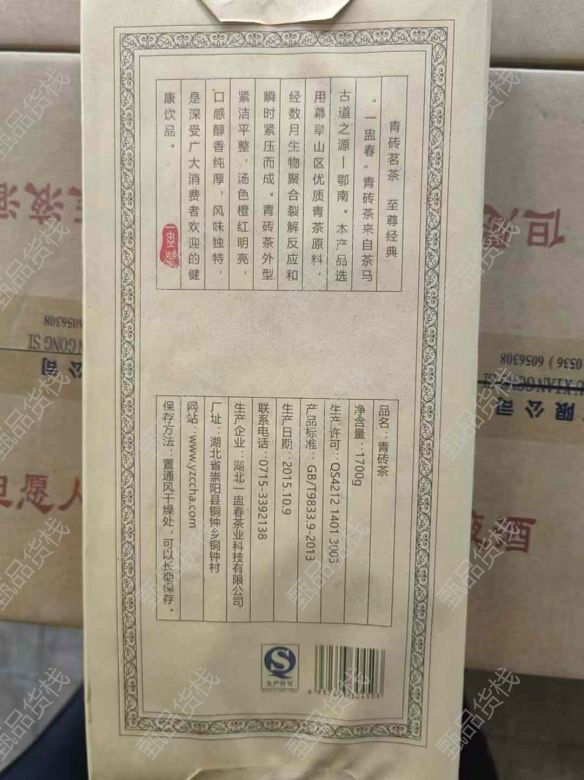 青砖茗茶 至尊经典
“一盅春”青砖茶来自茶马
古道之源—鄂南。本产品选
用幕阜山区优质青茶原料，
经数月生物聚合裂解反应和
瞬时紧压而成。青砖茶外型
紧洁平整，汤色橙红明亮，
口感醇香纯厚，风味独特，
是深受广大消费者欢迎的健
康饮品。
品名：青砖茶
净含量：1700g
生产许可：QS4212 1401 3003
产品标准：GB/T9833.9-2013
生产日期：2015.10.9
联系电话：0715-3392138
生产企业：湖北一盅春茶业科技有限公司
厂址：湖北省崇阳县铜钟乡铜钟村
网站：www.yzccha.com
保存方法：置通风干燥处，可以长期保存。
QS
生产许可
公司
6056308
GONG SI
旦愿人
但
限公司
(0536) 6056308
甄品货栈